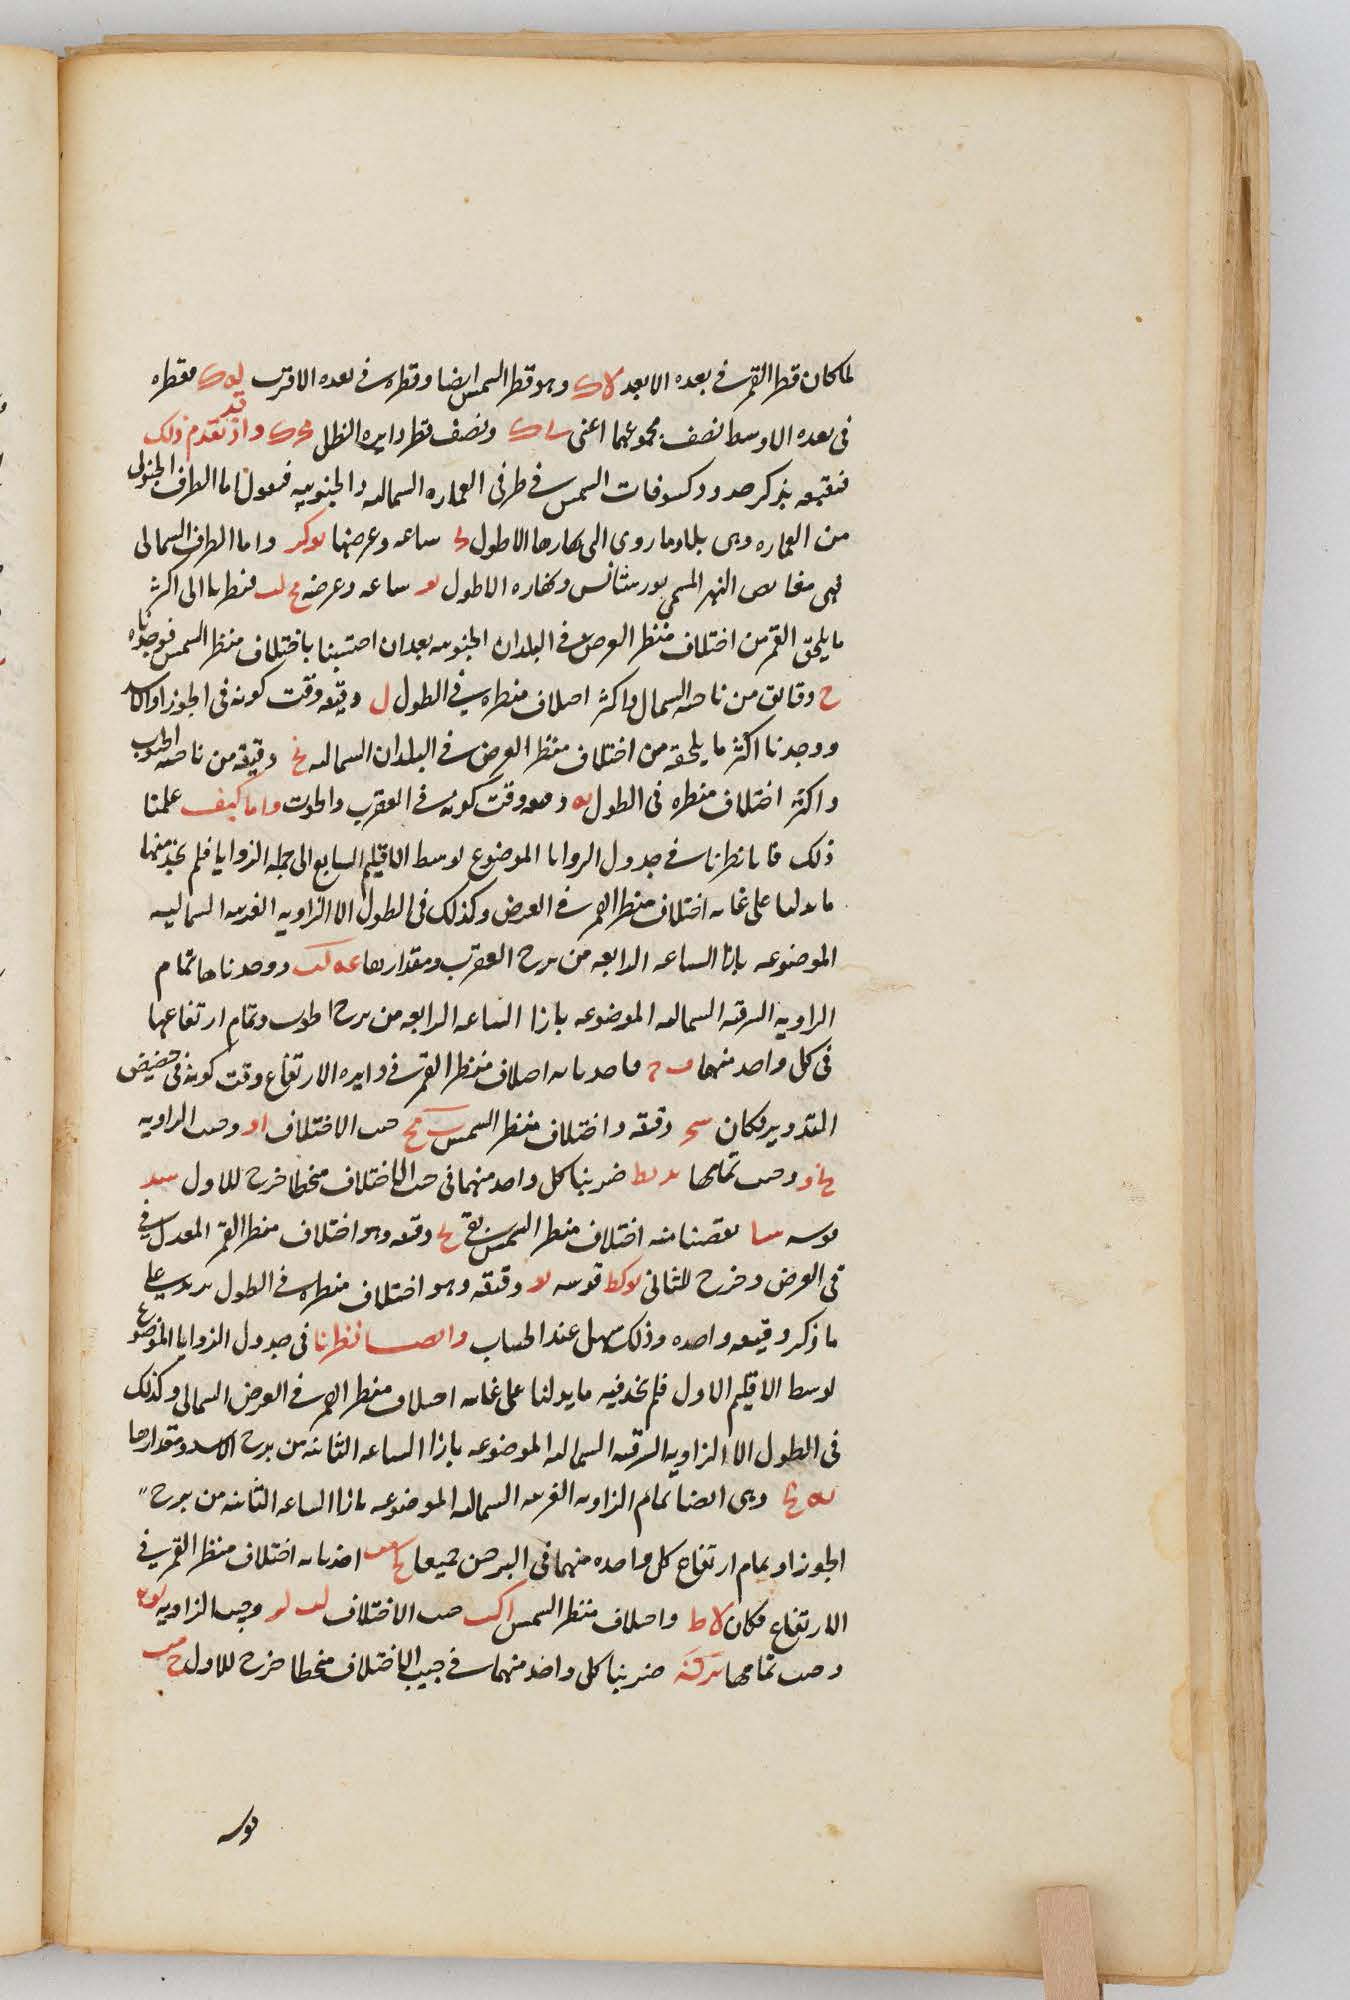 لما كان قطر القمر في بعده الابعد لاك وهو قطر الشمس ايضا وقطره في بعده الاقرب لوك فقطره
في بعده الاوسط نصف مجموعهما اعنى ونصف قطر دايره الظل واذ قد تقدم ذلك
فنتبعه بذكر حدود كسوفات الشمس في طرفى العماره الشماليه والجنوبيه فنقول اما الطرف الجنوبى
من العماره وهى بلاد ماروى التى نهارها الاطول ساعه وعرضها يوكز واما الطرف الشمالى
فهى مغايص النهر المسمى بورسثانس ونهاره الاطول يو ساعه وعرضه مح لب فنظرنا الى اكثر
ما يلحق القمر من اختلاف منظر العرض في البلدان الجنوبيه بعد ان احتسبنا باختلاف منظر الشمس فوجدناه
ح دقايق من ناحيه الشمال واكثر اختلاف منظره في الطول ل دقيقه وقت كونه في الجوزا والاسد
ووجدنا اكثر ما يلحقه من اختلاف منظر العرض في البلدان الشماليه نح دقيقه من ناحيه الجنوب
واكثر اختلاف منظره في الطول يه دقيقه وقت كونه في العقرب والحوت واما كيف علمنا
ذلك فانا نظرنا في جدول الزوايا الموضوع لوسط الاقليم السابع الى جمله الزوايا فلم نجد منها
ما يدلنا على غايه اختلاف منظر القمر في العرض وكذلك في الطول الا الزاويه الغربيه الشماليه
الموضوعه بازا الساعه الرابعه من برج العقرب ومقدارها عه لب ووجدناها تمام
الزاويه الشرقيه الشماليه الموضوعه بازا الساعه الرابعه من برج الحوت وتمام ارتفاعها
في كل واحد منهما فاخذنا به اختلاف منظر القمر في دايره الارتفاع وقت كونه في حضيض
التدوير فكان سح دقيقه واختلاف منظر الشمس جيب الاختلاف اد وجيب الزاويه
نح و وجيب تمامها ضربنا كل واحد منهما في جيب الاختلاف منحطا خرج للاول
قوسه سا نقصنا منه اختلاف منظر الشمس بقى نح دقيقه وهو اختلاف منظر القمر المعدل في
في العرض وخرج للثانى يوكط قوسه يو دقيقه وهو اختلاف منظره في الطول على
ما ذكر دقيقه واحده وذلك سهل عند الحساب وايضا نظرنا في جدول الزوايا الموضوع
لوسط الاقليم الاول فلم نجد فيه ما يدلنا على غايه اختلاف منظر القمر في العرض الشمالى وكذلك
في الطول الا الزاويه الشرقيه الشماليه الموضوعه بازا الساعه الثانيه من برج الاسد ومقدارها
وهى ايضا تمام الزاويه الغربيه الشماليه الموضوعه بازا الساعه الثانيه من برج
الجوزا وتمام ارتفاع كل واحده منهما في البرجين جميعا اخذنا به اختلاف منظر القمر في
الارتفاع فكان لاط واختلاف منظر الشمس اكب جيب الاختلاف لب لو وجيب الزاويه
وجيب تمامها ضربنا كل واحد منهما في جيب الاختلاف منحطا خرج للاول
قوسه